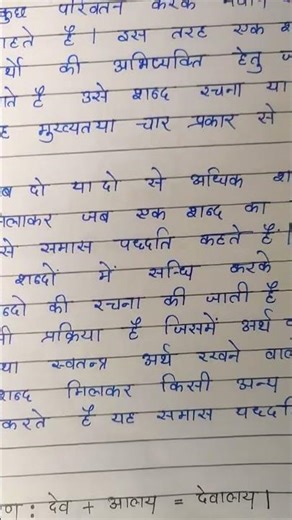 कुछ परिवर्तन करके
हते हैं। इस तरह एक श
र्थो की अभिव्यक्ति हेतु ज
ते हैं उसे शब्द रचना या
ह मुख्यतया चार प्रकार से
ब दो या दो से अधिक श
मिलाकर जब एक शब्द का
से समास पध्दति कहते हैं।
शब्दों में सन्धि करके
ब्दो की रचना की जाती है
ी प्रक्रिया है जिसमें अर्थ व
था स्वतन्त्र अर्थ रखने वाले
शब्द मिलकर किसी अन्य
करते हैं यह समास पध्दति
ण : देव + आलय = देवालय।